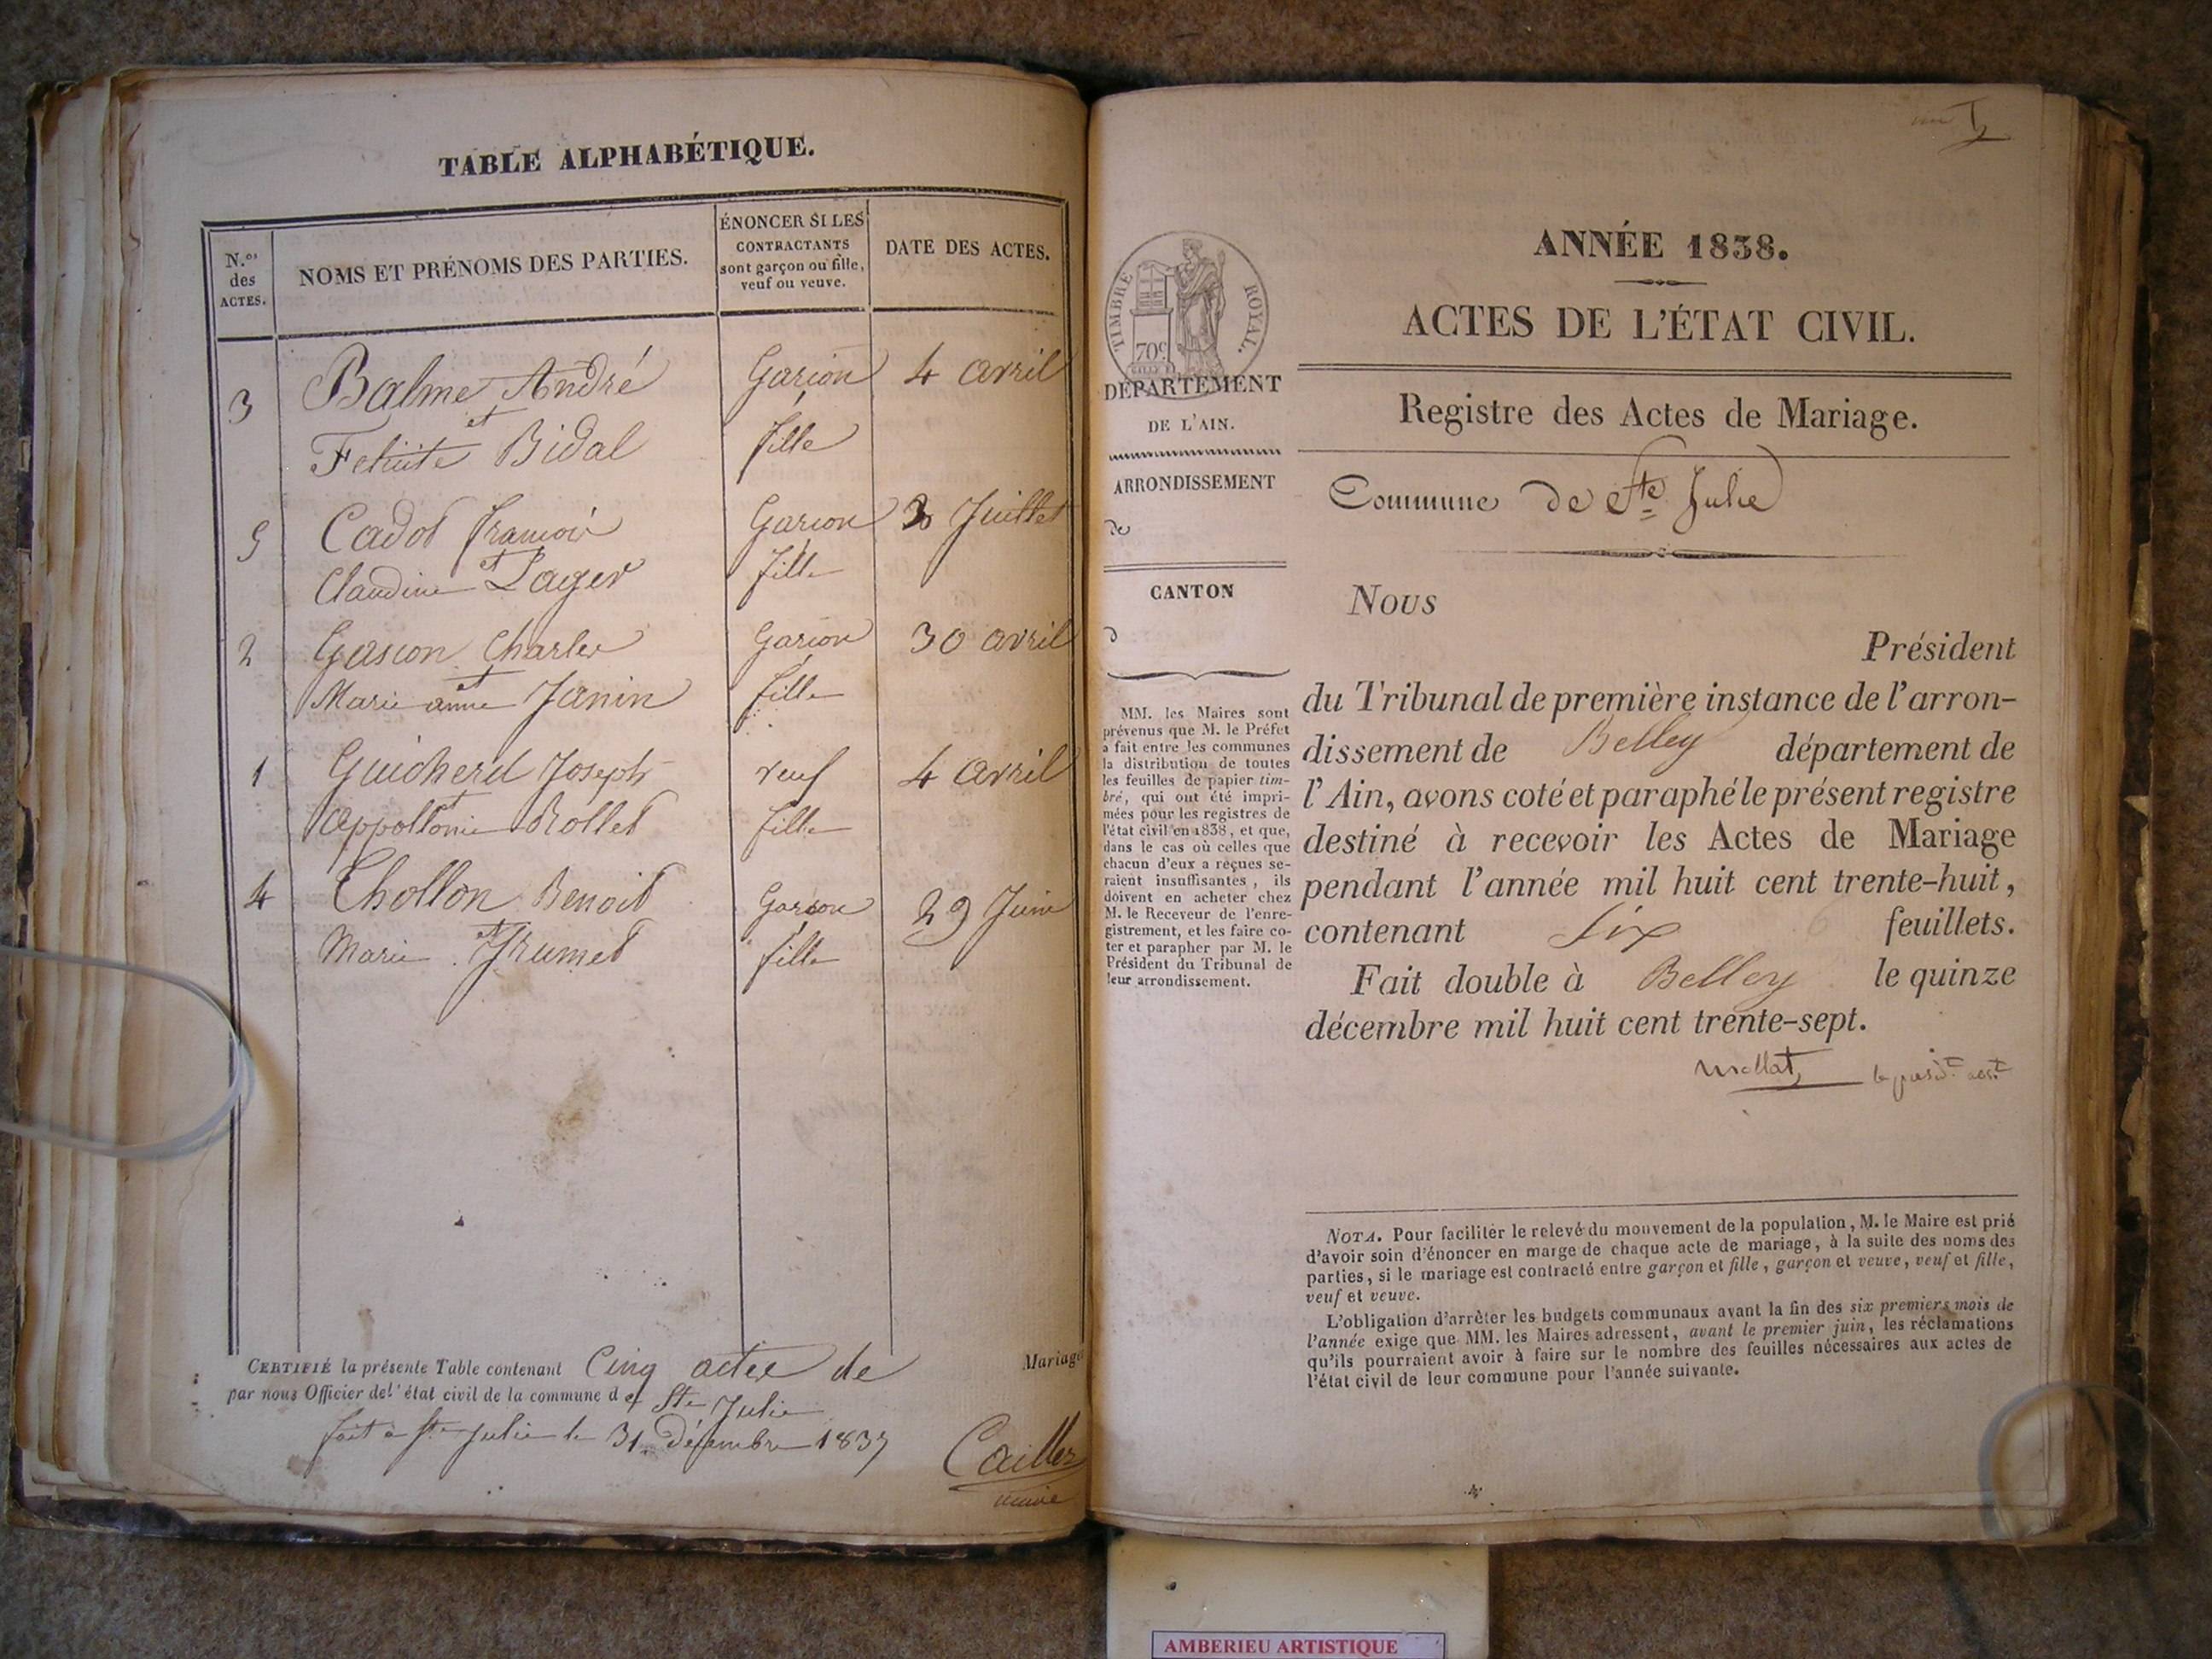 TABLE ALPHABÉTIQUE.
N.os
des
ACTES.
NOMS ET PRÉNOMS DES PARTIES.
ÉNONCER SI LES
CONTRACTANTS
sont garçon ou fille,
veuf ou veuve.
DATE DES ACTES.
3 Balme André Garçon 4 avril
et
Felicite Bidal fille
5 Cadot francois Garçon 3 Juillet
et
Claudine Lager fille
2 Gascon Charles Garçon 30 avril
et
Marie anne Janin fille
1 Guicherd Joseph veuf 4 avril
et
appollonie Rollet fille
4 Chollon Benoit Garçon 29 Juin
et
Marie Grumet fille
CERTIFIÉ la présente Table contenant Cinq actes de Mariage
par nous Officier de l'état civil de la commune de Ste Julie
fait à Ste Julie le 31 Décembre 1837
Caillez
maire
I
ANNÉE 1838.
ACTES DE L'ÉTAT CIVIL.
Registre des Actes de Mariage.
Commune de Ste Julie
TIMBRE ROYAL.
70c
DÉPARTEMENT
DE L'AIN.
ARRONDISSEMENT
de
CANTON
d
MM. les Maires sont
prévenus que M. le Préfet
a fait entre les communes
la distribution de toutes
les feuilles de papier tim-
bré, qui ont été impri-
mées pour les registres de
l'état civil en 1838, et que,
dans le cas où celles que
chacun d'eux a reçues se-
raient insuffisantes, ils
doivent en acheter chez
M. le Receveur de l'enre-
gistrement, et les faire co-
ter et parapher par M. le
Président du Tribunal de
leur arrondissement.
Nous
Président
du Tribunal de première instance de l'arron-
dissement de Belley département de
l'Ain, avons coté et paraphé le présent registre
destiné à recevoir les Actes de Mariage
pendant l'année mil huit cent trente-huit,
contenant six 6 feuillets.
Fait double à Belley le quinze
décembre mil huit cent trente-sept.
Mollat, le présdt
NOTA. Pour faciliter le relevé du mouvement de la population, M. le Maire est prié
d'avoir soin d'énoncer en marge de chaque acte de mariage, à la suite des noms des
parties, si le mariage est contracté entre garçon et fille, garçon et veuve, veuf et fille,
veuf et veuve.
L'obligation d'arrêter les budgets communaux avant la fin des six premiers mois de
l'année exige que MM. les Maires adressent, avant le premier juin, les réclamations
qu'ils pourraient avoir à faire sur le nombre des feuilles nécessaires aux actes de
l'état civil de leur commune pour l'année suivante.
AMBERIEU ARTISTIQUE